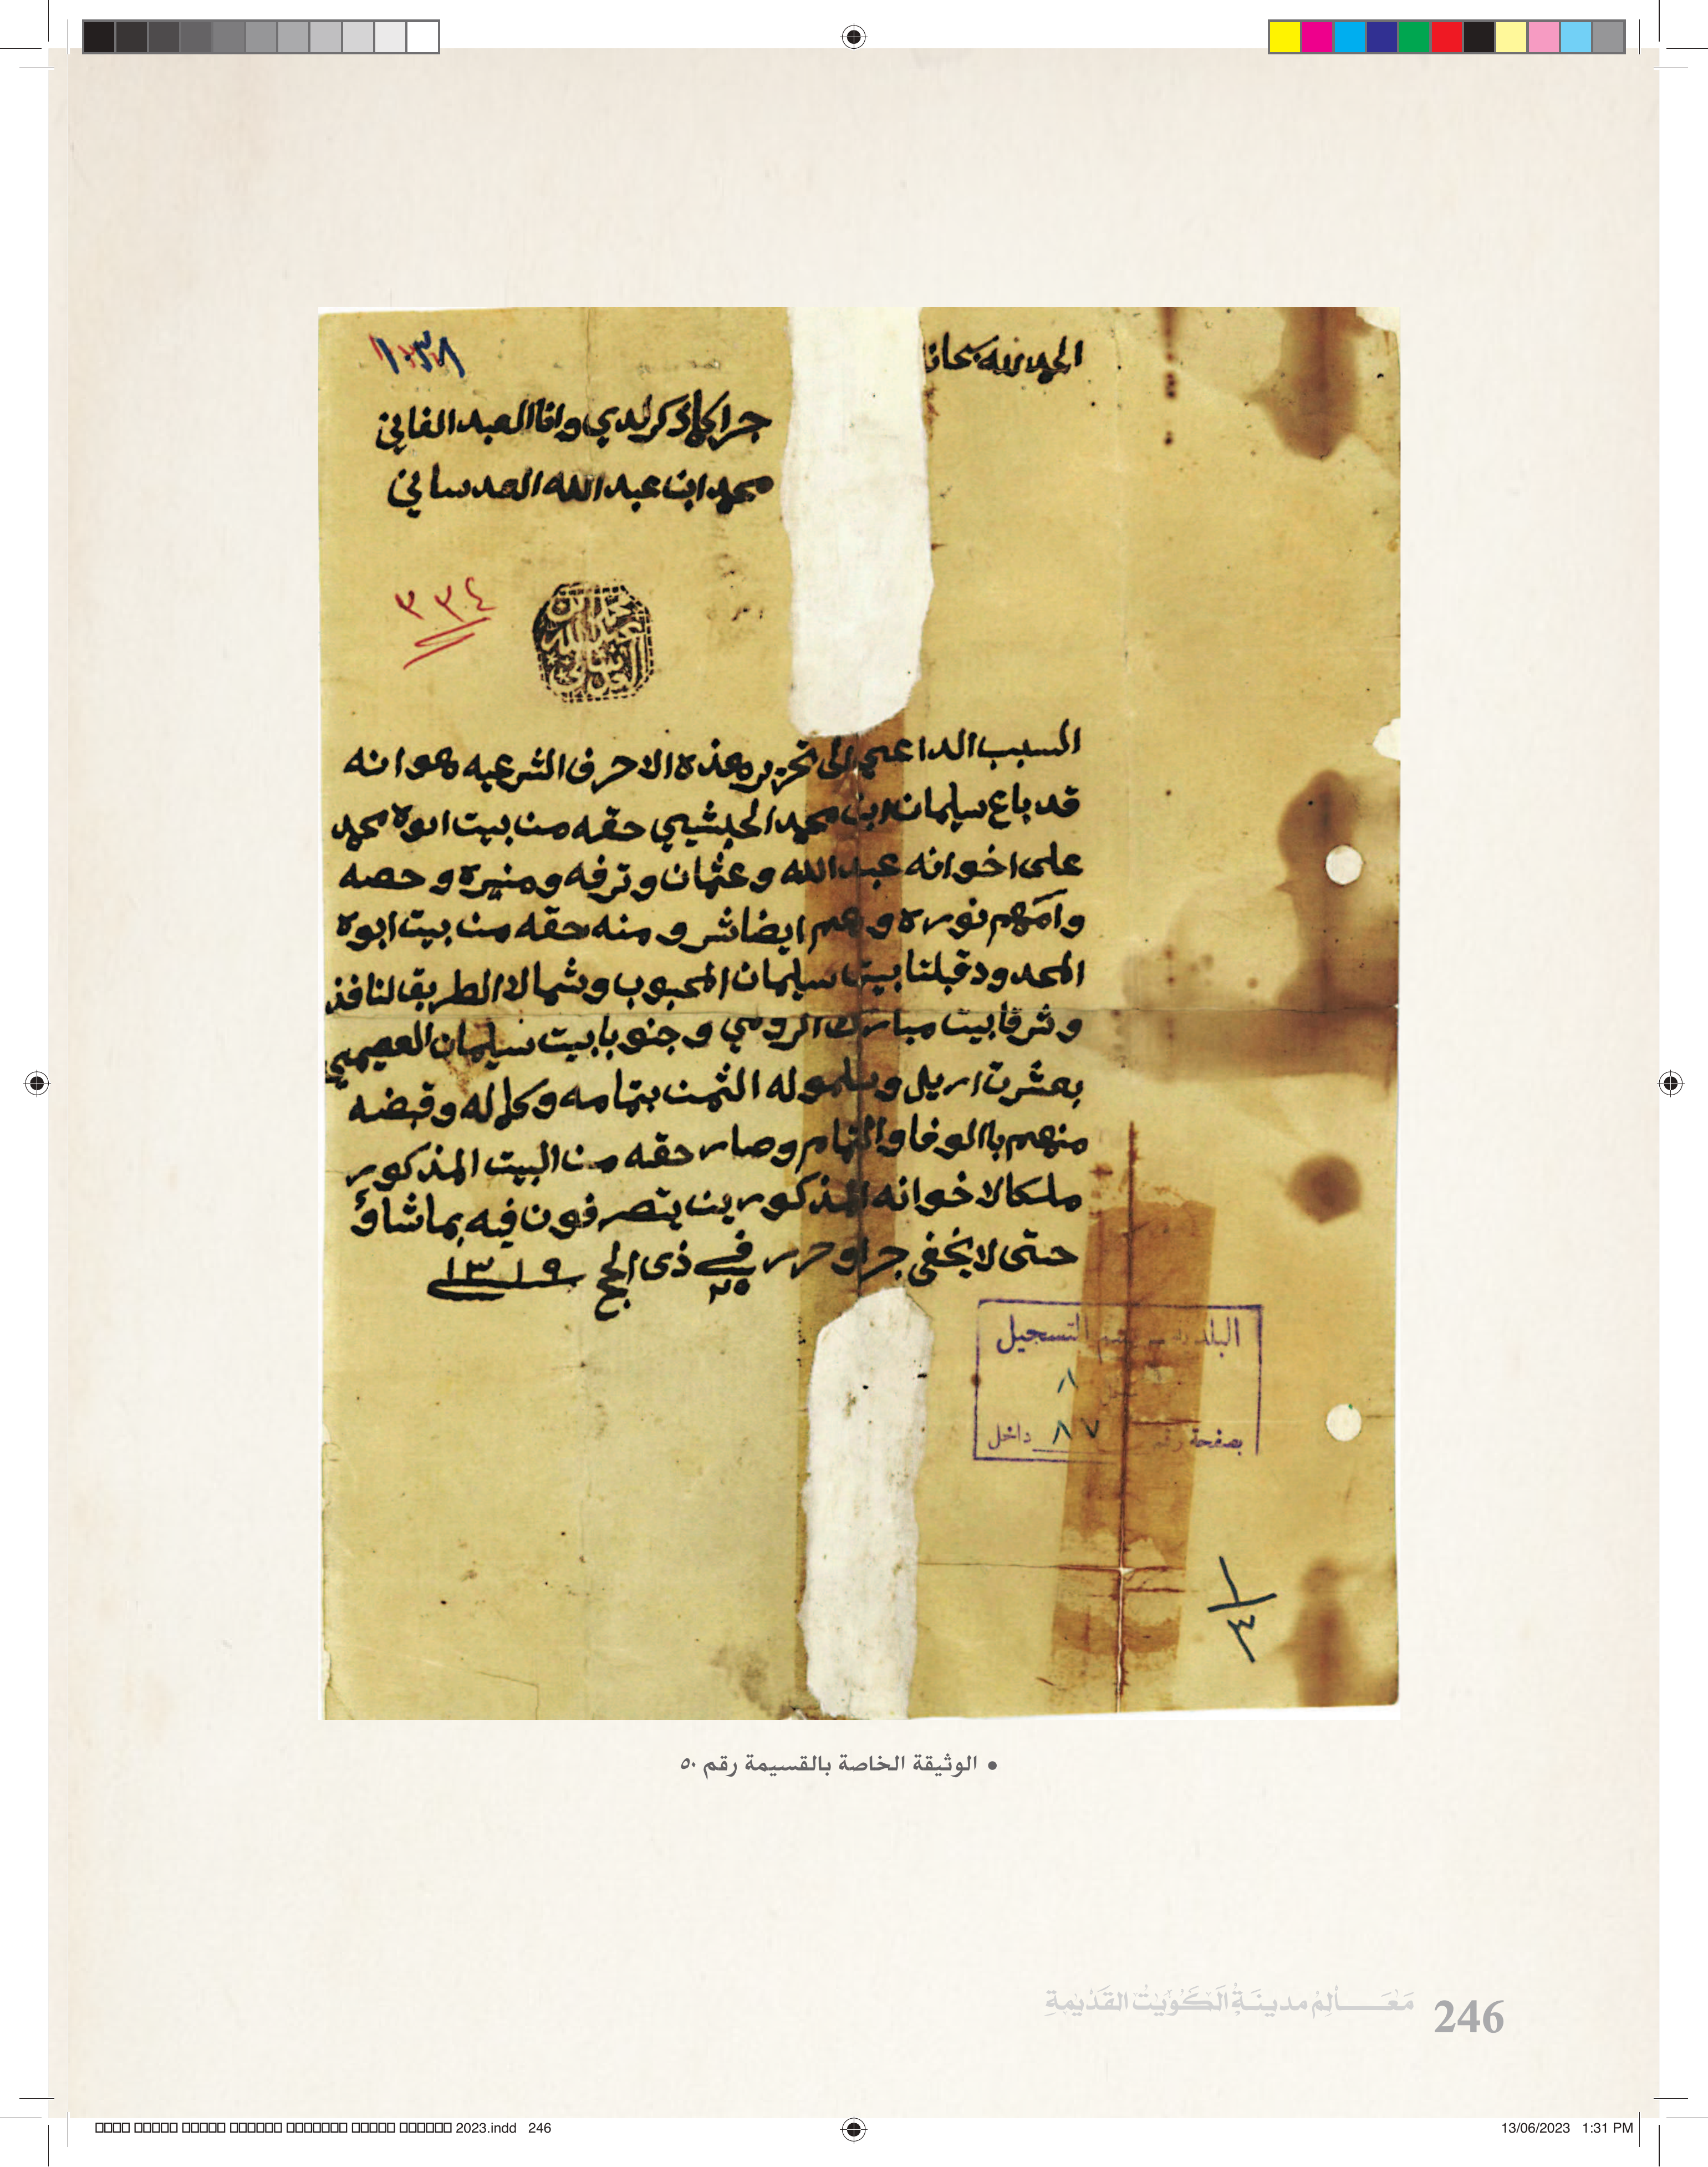 الحمد لله سبحانه
١٠٣٨
جرا كما ذكر لدي وانا العبد الفاني
محمد ابن عبد الله العدساني
٣٣٤
محمد بن
عبد الله
العدساني
السبب الداعي الى تحرير هذه الاحرف الشرعيه هو انه
قد باع سليمان ابن محمد الحبشي حقه من بيت ابوه محمد
على اخوانه عبد الله وعثمان وترفه ومنيره وحصه
وامهم نوره وهم ايضا شرو منه حقه من بيت ابوه
المحدود قبلتا بيت سليمان المحبوب وشمالا الطريق النافذ
وشرقا بيت مبارك الرومي وجنوبا بيت سليمان العصيمي
بعشرت اريل وسلمو له الثمن بتمامه وكماله وقبضه
منهم باالوفا والتمام وصار حقه من البيت المذكور
ملكا لاخوانه المذكورين يتصرفون فيه بما شاؤ
حتى لا يخفى جرا وحرر في ٢٥ ذي الحج ١٣١٩
البلدية قسم التسجيل
٨
بصفحة رقم ٨٧ داخل
١/٤
• الوثيقة الخاصة بالقسيمة رقم ٥٠
مَعَـــالِمُ مدينَـةِ الكُوَيْت القَدْيمةِ 246
2023.indd 246
13/06/2023 1:31 PM